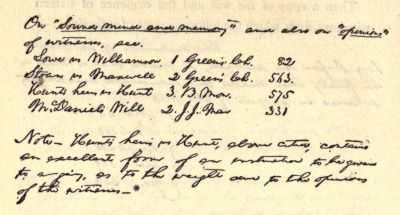 On "Sound mind and memory" and also on "opinions"
of witness, see.
Lowe vs Williamson. 1 Green's Ch. 82
Sloan vs Maxwell 2 Green's Ch. 563.
Hunts heirs vs Hunt 3. B Mon. 575
McDaniels Will 2. J.J. Mar 331
Note – Hunts heirs vs Hunt, above cited, contains
an excellent form of an instruction to be given
to a jury, as to the weight due to the opinions
of the witness – *